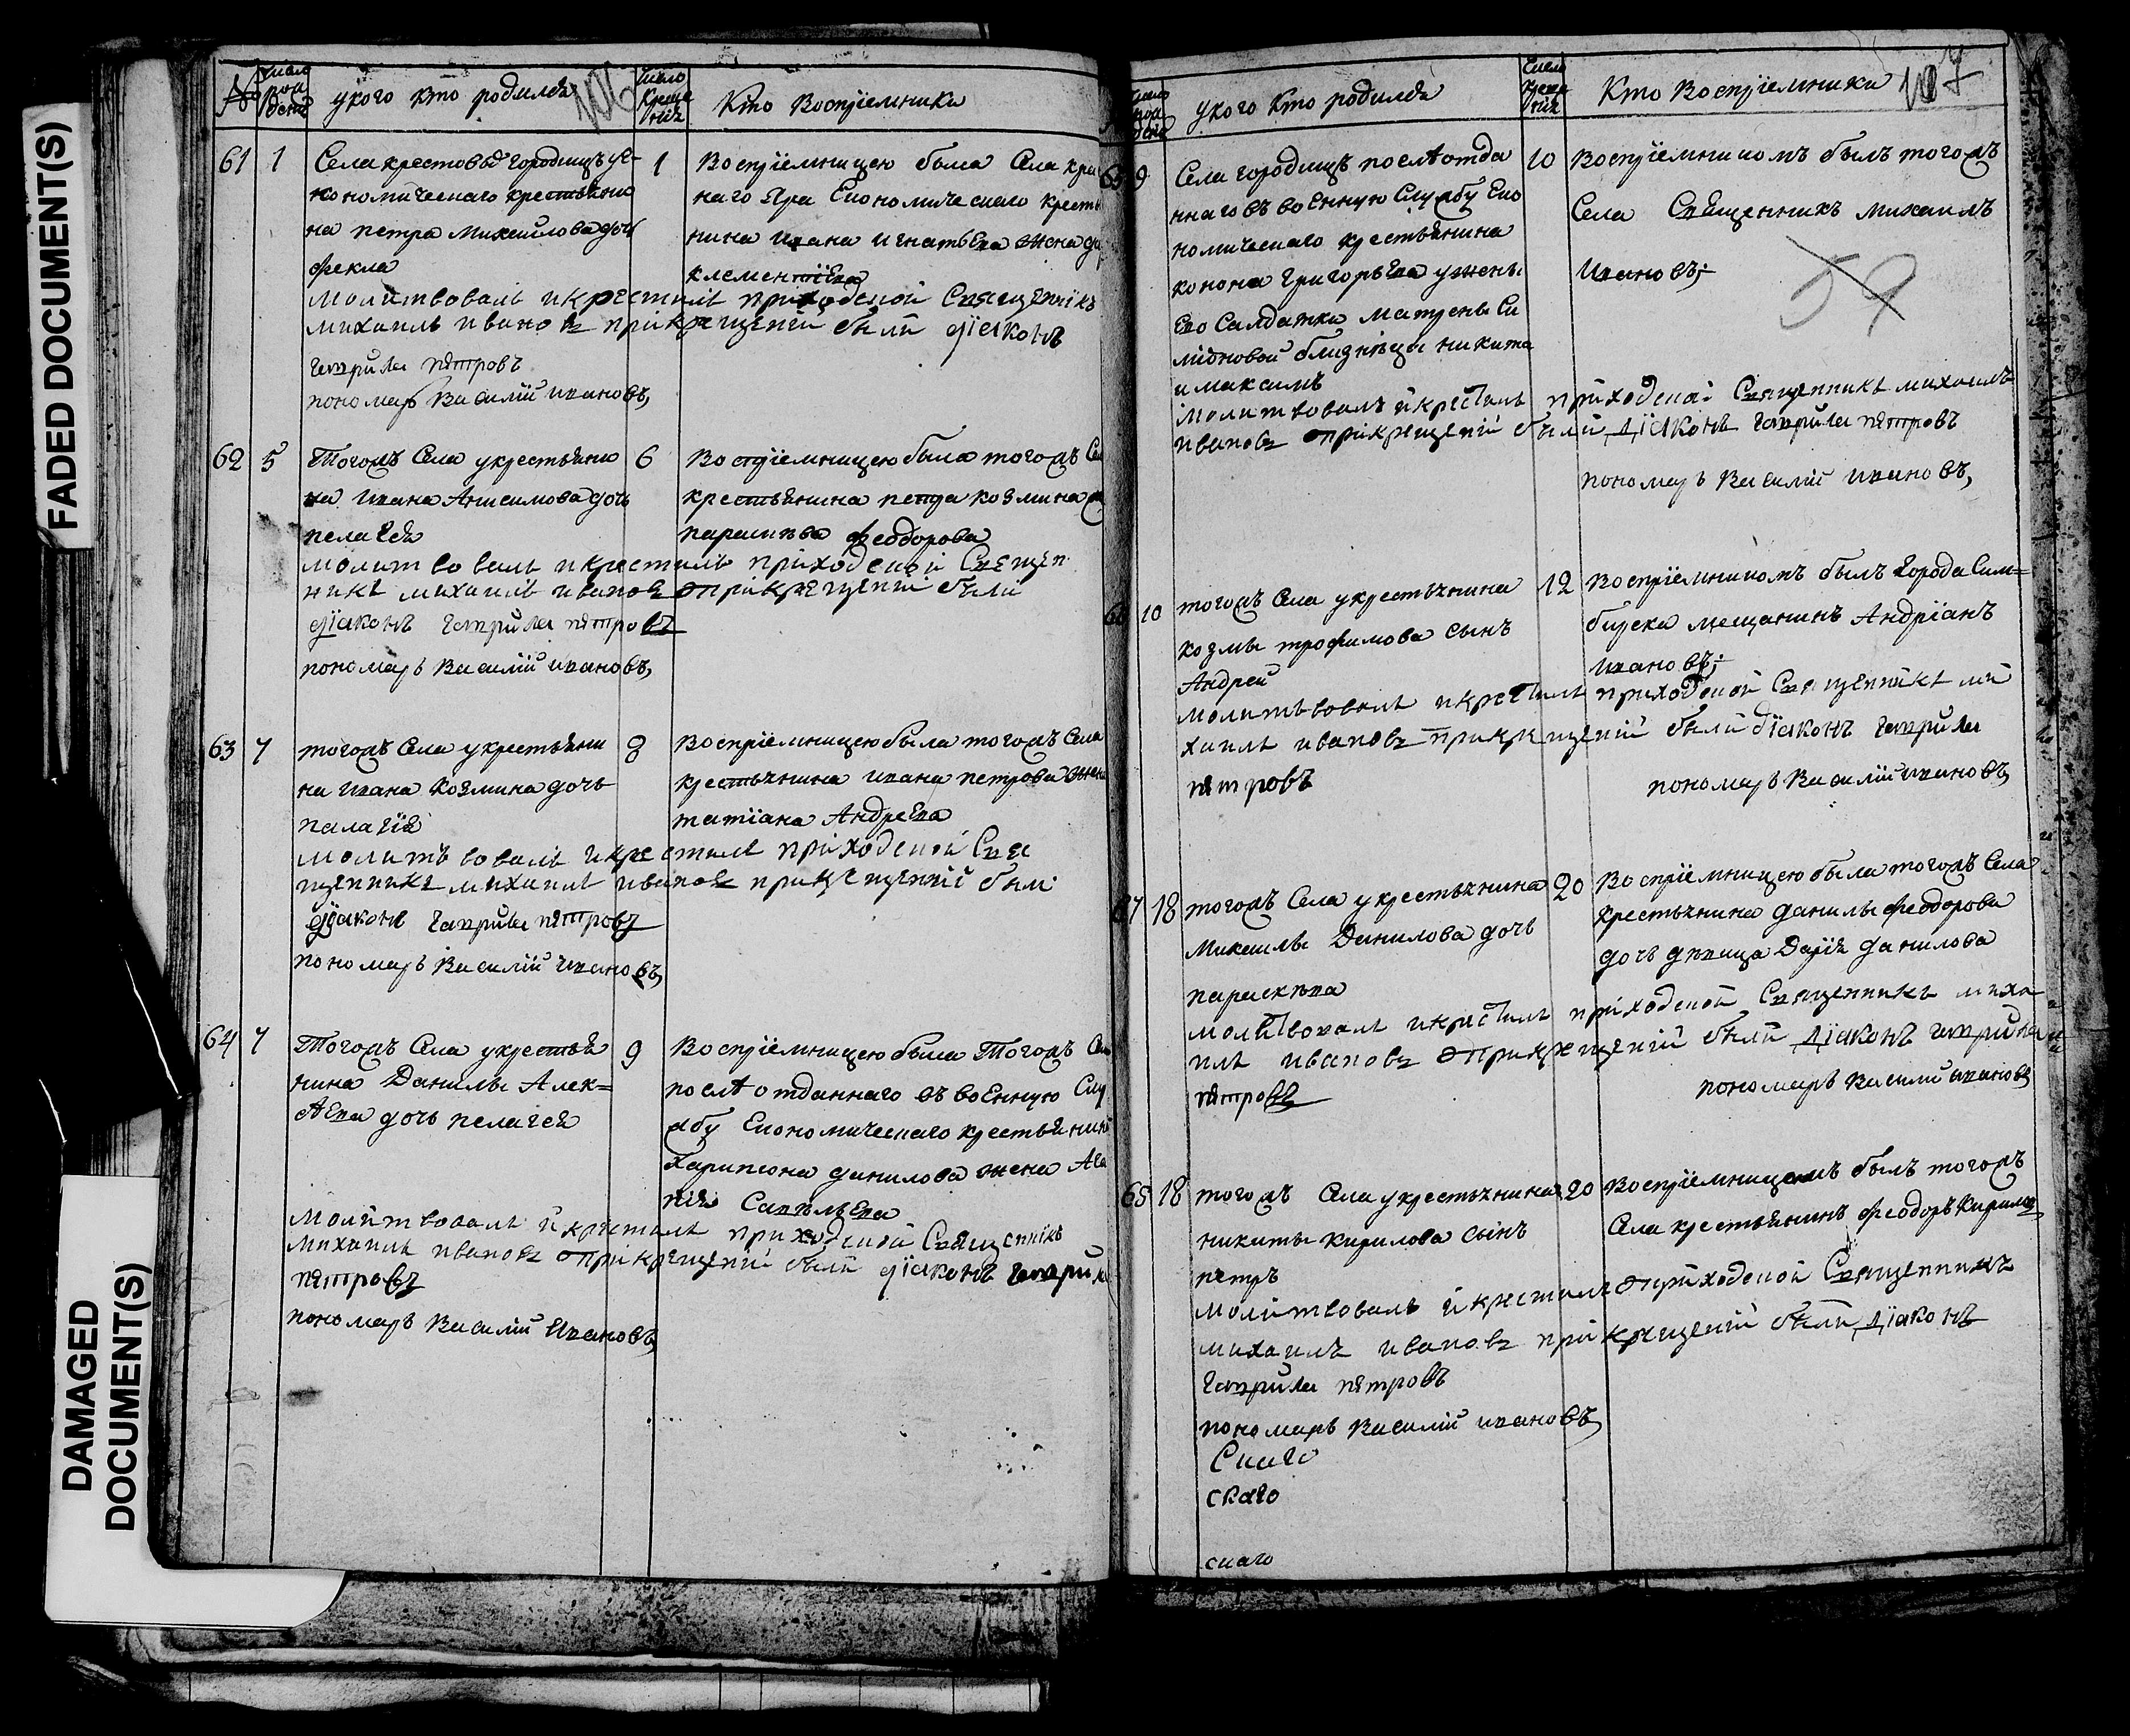 FADED DOCUMENT(S)
DAMAGED
DOCUMENT(S)
№
число рождения
у кого кто родился
106
число крещения
Кто воспріемники
61 1
Села крестовые городищъ у е-
кономическаго крестьяни
на петра михаилова дочь
фекла
1
воспріемницею была села кра
наго яра економическаго кресть
нина ивана игнатьева жена
клементіева
молитвовалъ и крестилъ приходской священникъ
михаилъ ивановъ при крещеніи были діаконъ
гаврила петровъ
пономарь василій ивановъ,
62 5
Тогожъ села у крестьяни
на ивана Анисимова дочь
пелагея
6
воспріемницею была тогожъ
крестьянина петра козмина
парасковья феодорова
молитвовалъ и крестилъ приходской свещен
никъ михаилъ ивановъ при крещеніи были
діаконъ гаврила петровъ
пономарь василій ивановъ,
63 7
тогожъ села у крестьяни
на ивана козмина дочь
палагія
8
воспріемницею была тогожъ села
крестьянина ивана петрова жена
татіана Андреева
молитвовалъ и крестилъ приходской свя
щенникъ михаилъ ивановъ при крещеніи были
діаконъ гаврила петровъ
пономарь василій ивановъ,
64 7
Тогожъ села у крестья
нина Данилы Алек=
сѣева дочь пелагея
9
воспріемницею была Тогожъ
послѣ отданнаго въ военную слу
жбу економическаго крестьянина
харитона данилова жена Ага
пія Савельева
молитвовалъ и крестилъ приходской священникъ
михаилъ ивановъ при крещеніи были діаконъ гаврила
петровъ
пономарь василій ивановъ,
число рождения
у кого кто родился
число крещения
Кто воспріемники
107
65 9
Села городищъ послѣ отда
ннаго въ военную службу еко
номическаго крестьянина
конона григорьева у жены
его салдатки матрены си
міоновой близнецы никита
и максимъ
10
воспріемникомъ былъ тогожъ
села священникъ михаилъ
ивановъ;
59
молитвовалъ и крестилъ приходской священникъ михаилъ
ивановъ при крещеніи были діаконъ гаврила петровъ
пономарь василій ивановъ,
66 10
тогожъ села у крестьянина
козмы трофимова сынъ
Андрей
12
воспріемникомъ былъ города сим=
бирска мещанинъ Андріанъ
ивановъ;
молитвовалъ и крестилъ приходской священникъ ми
хаилъ ивановъ при крещеніи были діаконъ гаврила
петровъ
пономарь василій ивановъ,
67 18
тогожъ села у крестьянина
михаилы Данилова дочь
параскѣва
20
воспріемницею была тогожъ села
крестьянина данилы феодорова
дочь дѣвица Дарія данилова
молитвовалъ и крестилъ приходской священникъ миха
илъ ивановъ при крещеніи были діаконъ гаврила
петровъ
пономарь василій ивановъ
68 18
тогожъ села у крестьянина
никиты кирилова сынъ
петръ
20
воспріемницемъ былъ тогожъ
села крестьянинъ феодоръ кирилов
молитвовалъ и крестилъ приходской священникъ
михаилъ ивановъ при крещеніи были діаконъ
гаврила петровъ
пономарь василій ивановъ,
скаго
скаго
скаго